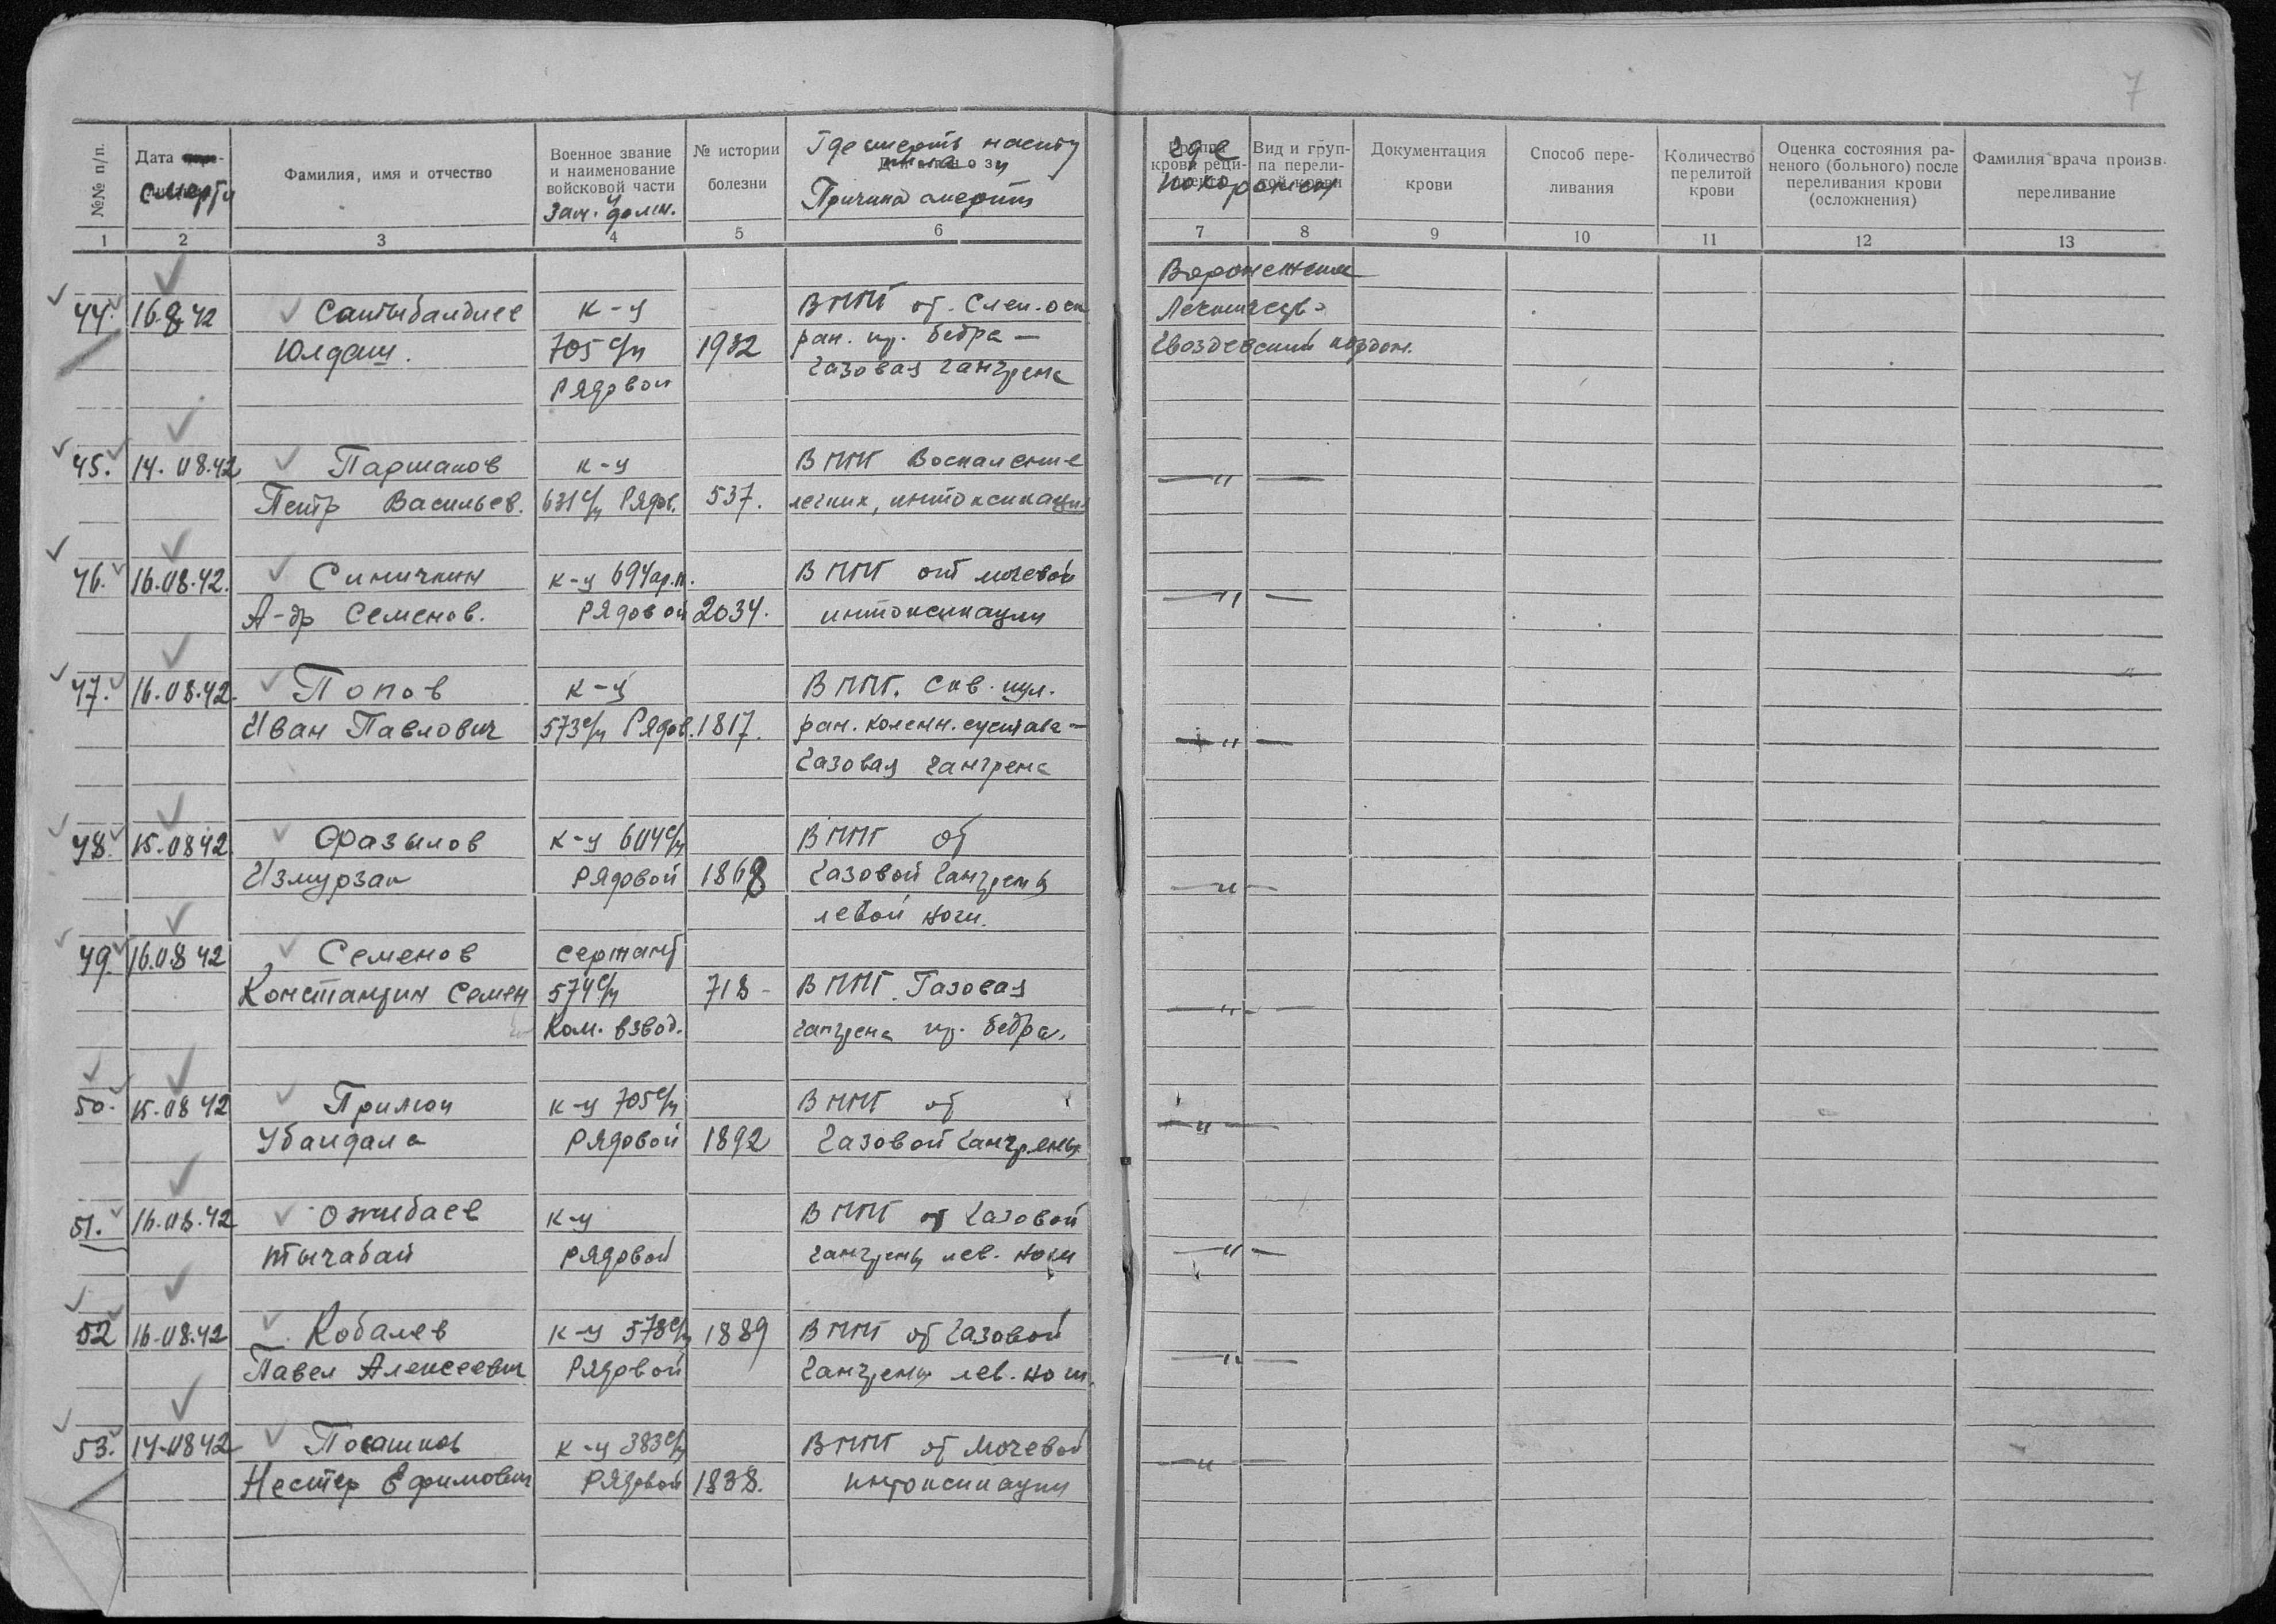 7
№№ п/п.
Дата смерти
Фамилия, имя и отчество
Военное звание и наименование войсковой части
Зан. должн.
№ истории болезни
Где смерть наступила
Причина смерти
где похоронен
Вид и группа перелитой крови
Документация крови
Способ переливания
Количество перелитой крови
Оценка состояния раненого (больного) после переливания крови (осложнения)
Фамилия врача произв. переливание
1 2 3 4 5 6 7 8 9 10 11 12 13
Воронежская
44. 16.8.42 к-ц ВППГ от Слеп. оск Лесничеств
Юлдаш. 705 с/п 1982 ран. пр. бедра — Гвоздевский кордон.
Рядовой Газовая гангрена
45. 14.08.42 Паршаков к-ц ВППГ Воспаление
Петр Васильев. 631 с/п Рядов. 537. легких, интоксикация — " —
46. 16.08.42. Синичкин к-ц 694 ар.п. ВППГ от мочевой
А-др Семенов. Рядовой 2034. интоксикации — " —
47. 16.08.42. Попов к-ц ВППГ. Скв. пул.
Иван Павлович 573 с/п Рядов. 1817. ран. коленн. сустава — — " —
Газовая гангрена
48. 15.08.42. Фазылов к-ц 604 с/п ВППГ от
Измурзак Рядовой 1868 Газовой гангрены — " —
левой ноги.
49. 16.08.42 Семенов сержант
Константин Семен 574 с/п 718 - ВППГ. Газовая
Ком. взвод. гангрена пр. бедра. — " —
50. 15.08.42 к-ц 705 с/п ВППГ от
Рядовой 1892 Газовой гангрены — " —
51. 16.08.42 Ожибаев к-ц ВППГ от газовой
рядовой гангрены лев. ноги — " —
52 16.08.42 Кобалев к-ц 578 с/п 1889 ВППГ от газовой
Павел Алексеевич Рядовой гангрены лев. ноги. — " —
53. 14.08.42 Посашков к-ц 383 с/п ВППГ от мочевой
Нестер Ефимович Рядовой 1838. интоксикации — " —